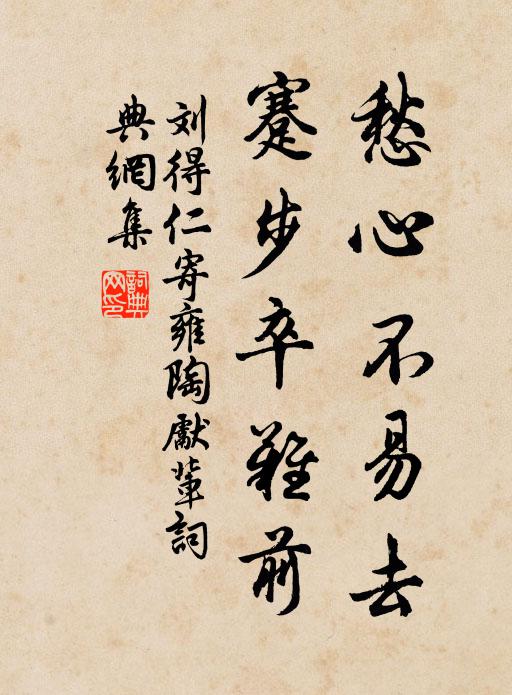 愁心不易去
蹇步卒難前
刘得仁寄雍陶獻輩詞
典網集
詞典
网印